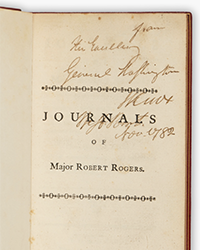 from
His Excellency
General Washington
HKnox
JOURNALS
Nov. 1782
OF
Major ROBERT ROGERS.